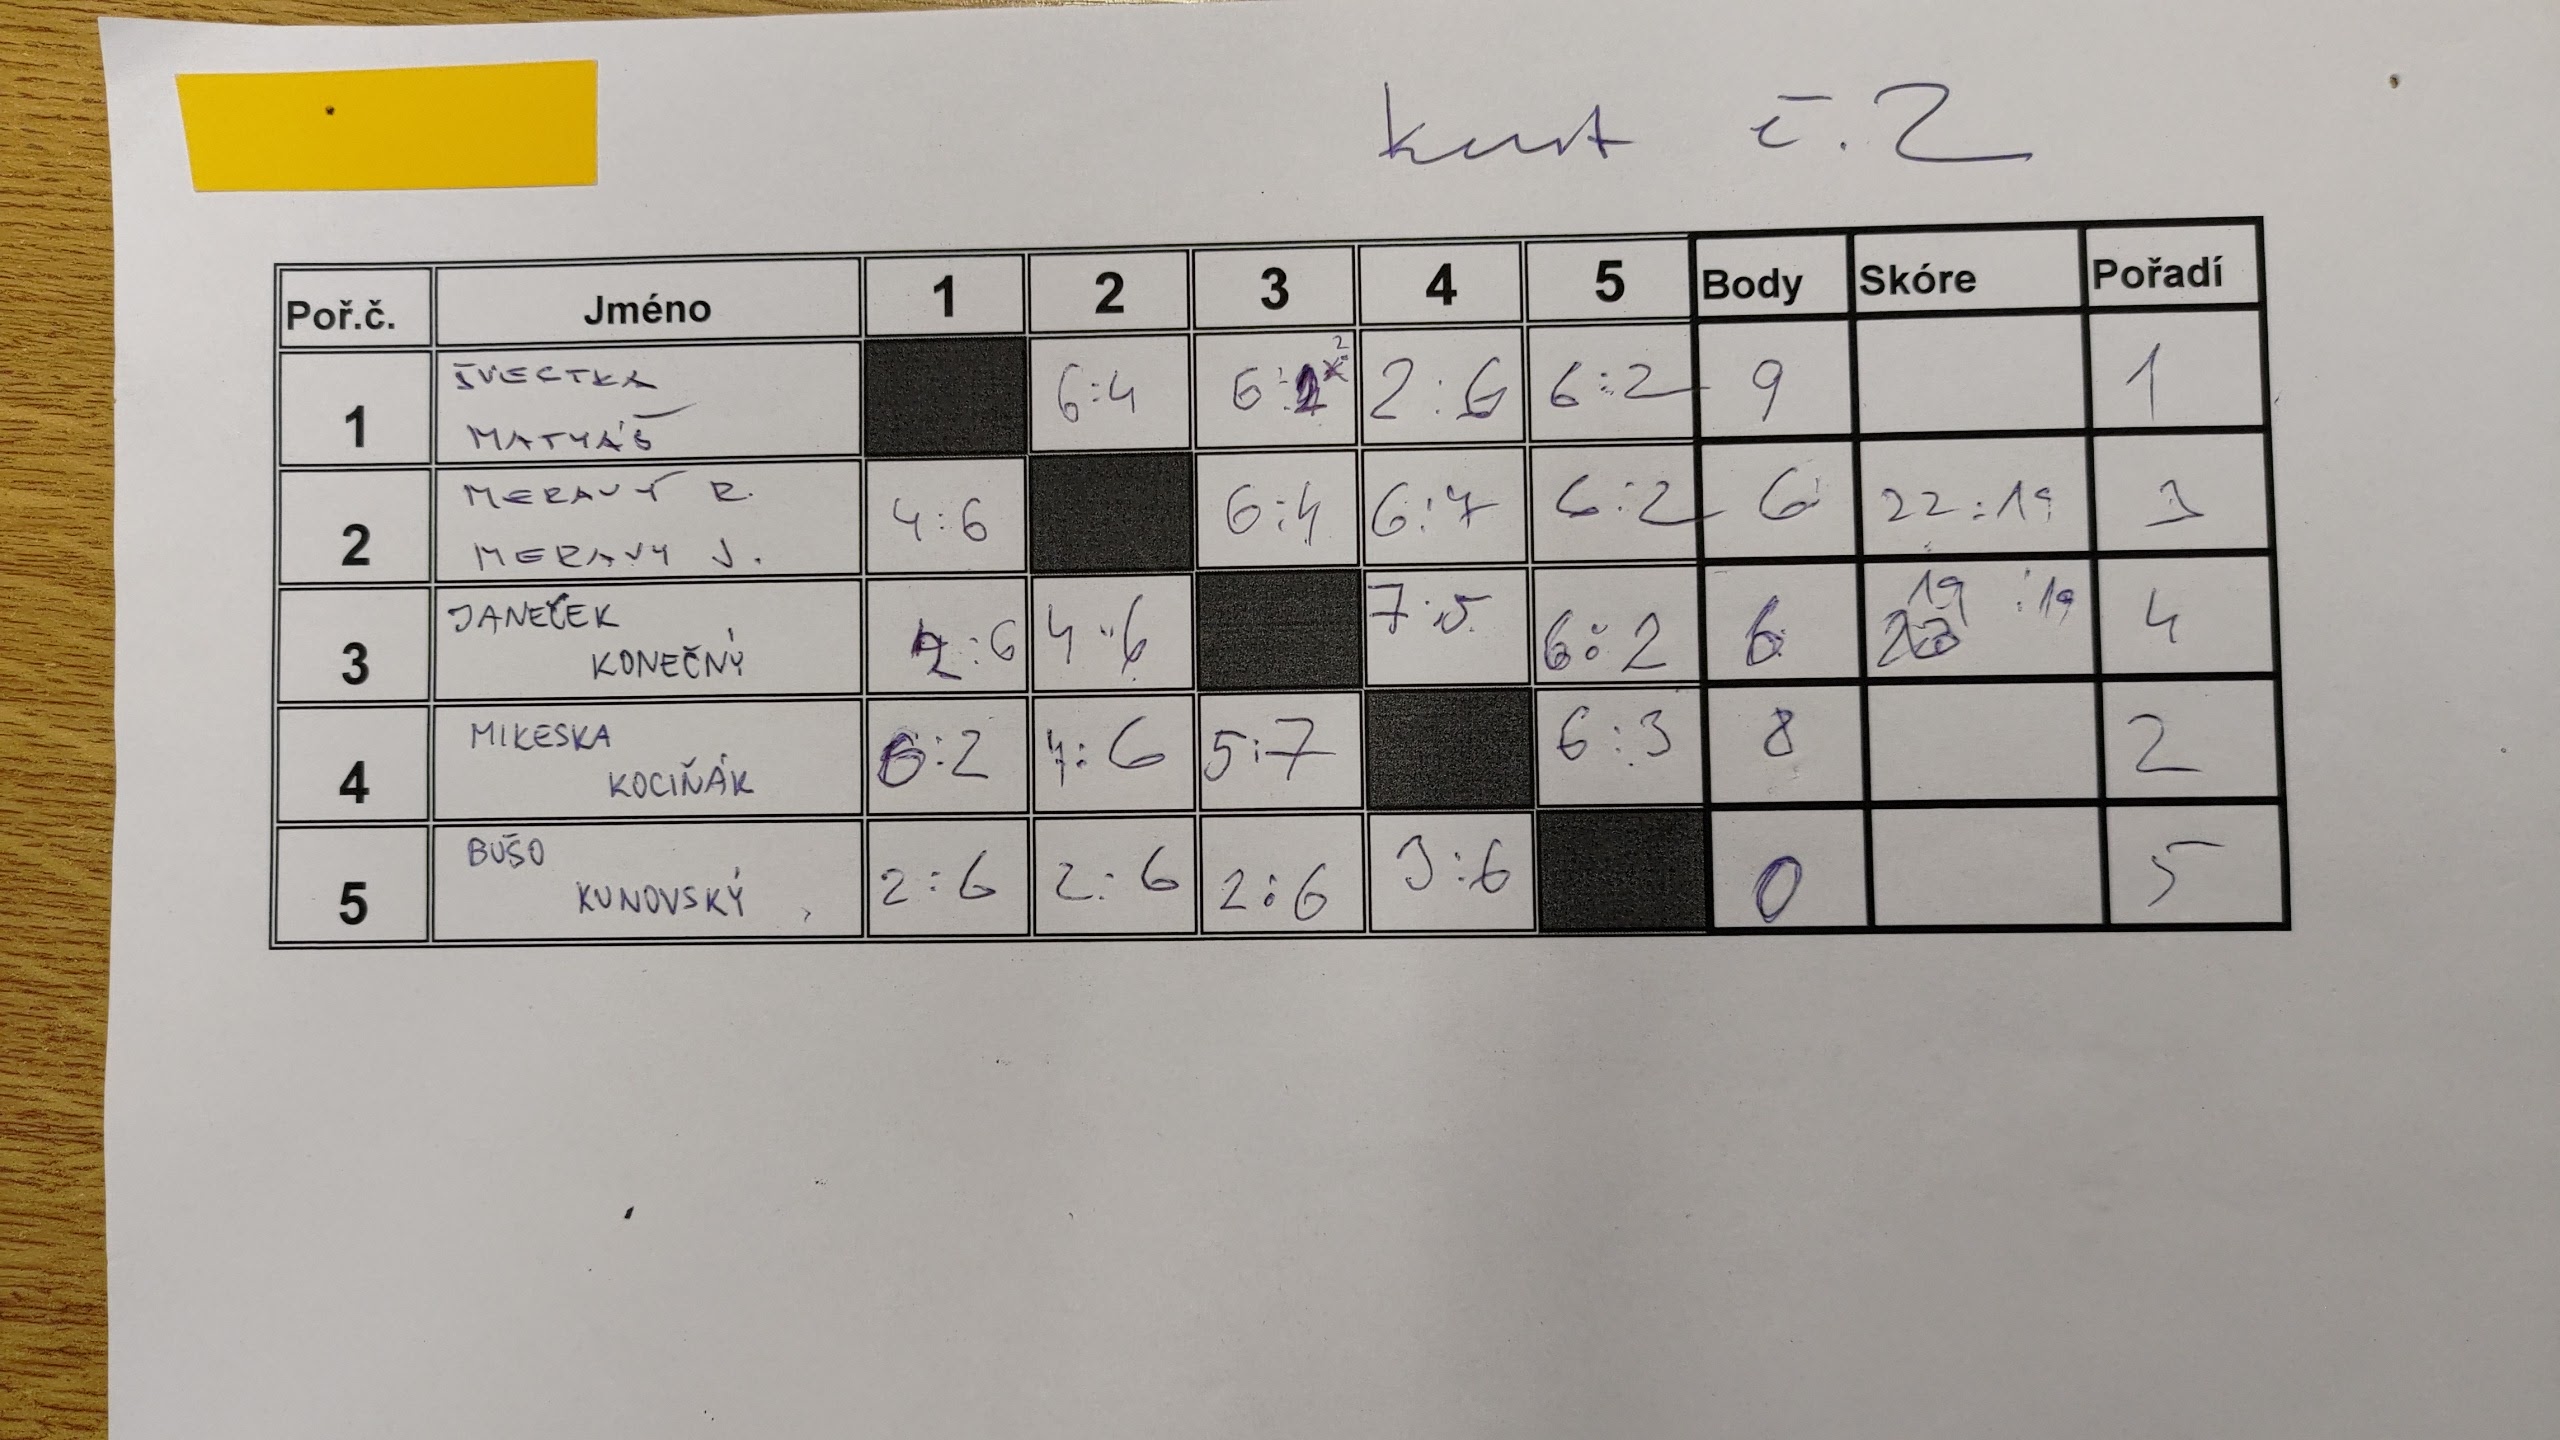 kurt č.2
Poř.č. Jméno 1 2 3 4 5 Body Skóre Pořadí
1 ŠVESTKA MATYÁŠ 6:4 6:2 2:6 6:2 9 1
2 MERAVÝ R. MERAVÝ J. 4:6 6:4 6:7 6:2 6 22:19 3
3 JANEČEK KONEČNÝ 2:6 4:6 7:5 6:2 6 19:19 4
4 MIKESKA KOCIŇÁK 6:2 7:6 5:7 6:3 8 2
5 BUŠO KUNOVSKÝ 2:6 2:6 2:6 3:6 0 5